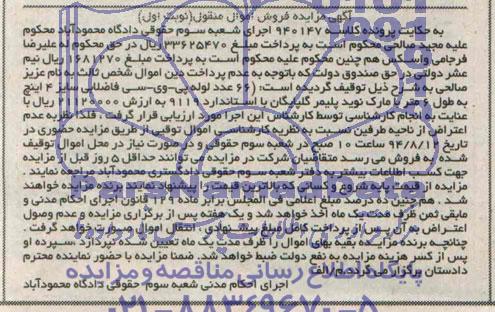 آگهی مزایده فروش اموال منقول(نوبت اول)
به حکایت پرونده کلاسه ۹۴۰۱۴۷ اجرای شعبه سوم حقوقی دادگاه محمودآباد محکوم
علیه مجید صالحی محکوم است به پرداخت مبلغ ۳۳۶۲۵۴۷۰ ریال در حق محکوم له علیرضا
فرجامی وآسکی و هم چنین محکوم علیه محکوم است به پرداخت مبلغ ۱۶۸۱۲۷۰ ریال نیم
عشر دولتی در حق صندوق دولت که باتوجه به عدم پرداخت دین اموال شخص ثالث به نام عزیز
صالحی به شرح ذیل توقیف گردیده است: (۶۶ عدد لوله پی-وی-سی فاضلابی سایز ۴ اینچ
به طول ۶ متر با مارک نوید پلیمر گلپایگان با استاندارد ۹۱۱۹ به ارزش ریال با
عنایت به انجام کارشناسی توسط کارشناس این اجرا مورد ارزیابی قرار گرفته، فلذا نظر به عدم
اعتراض از ناحیه طرفین نسبت به نظریه کارشناسی، اموال توقیفی از طریق مزایده حضوری در
تاریخ ساعت ۱۰ صبح در شعبه سوم حقوقی در صورت نیاز در محل اموال توقیف
شده به فروش می رسد متقاضیان شرکت در مزایده می توانند حداقل ۵ روز قبل از مزایده
جهت کسب اطلاعات بیشتر به دفتر شعبه سوم حقوقی دادگستری محمودآباد مراجعه نمایند
مزایده از قیمت پایه شروع و کسانی که بالاترین قیمت را پیشنهاد نمایند برنده مزایده خواهند
شد. هم چنین ده درصد مبلغ اعلامی فی المجلس برابر ماده ۱۲۹ قانون اجرای احکام مدنی و
مابقی ثمن ظرف مدت یک ماه اخذ خواهد شد و یک هفته پس از برگزاری مزایده و عدم وصول
اعتراض به آن پس از پرداخت کامل مبلغ پیشنهادی، انتقال اموال صورت خواهد گرفت.
چنانچه برنده مزایده بقیه بهای اموال را ظرف مدت یک ماه تعیین شده نپردازد سپرده او
پس از کسر هزینه مزایده به نفع دولت ضبط خواهد شد. ضمنا مزایده با حضور نماینده محترم
دادستان برگزار می گردد.م/الف
اجرای احکام مدنی شعبه سوم حقوقی دادگاه محمودآباد
پایگاه اطلاع رسانی مناقصه و مزایده
۰۲۱-۸۸۳۴۹۶۷۰-۵